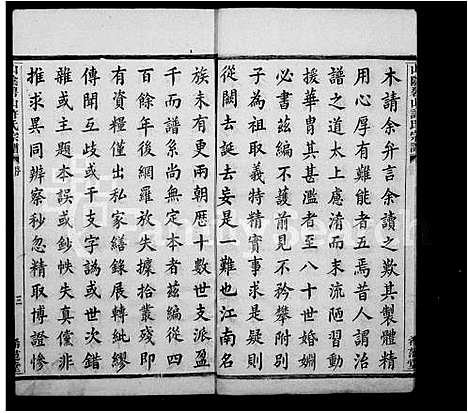 山陰碧山許氏宗譜
木請余弁言余讀之歎其製體精
用心厚有難能者五焉昔人謂治
譜之道太上慮淆而末流陋習動
援華冑其甚濫者至八十世婚姻
必書茲編不護前見不矜攀附別
子為祖取義特精實事求是疑則
從闕去誕去妄是一難也江南名
族未有更兩朝歷十數世支派盈
千而譜系尚無定本者茲編從四
十年後網羅放失據拾叢殘即
有資糧僅出私家繕錄展轉紕繆
傳聞互歧或干支字譌或世次錯
雜或主題本誤或鈔帙失真僅非
推求異同辨察秒忽精取博證慘
山陰碧山許氏宗譜
三